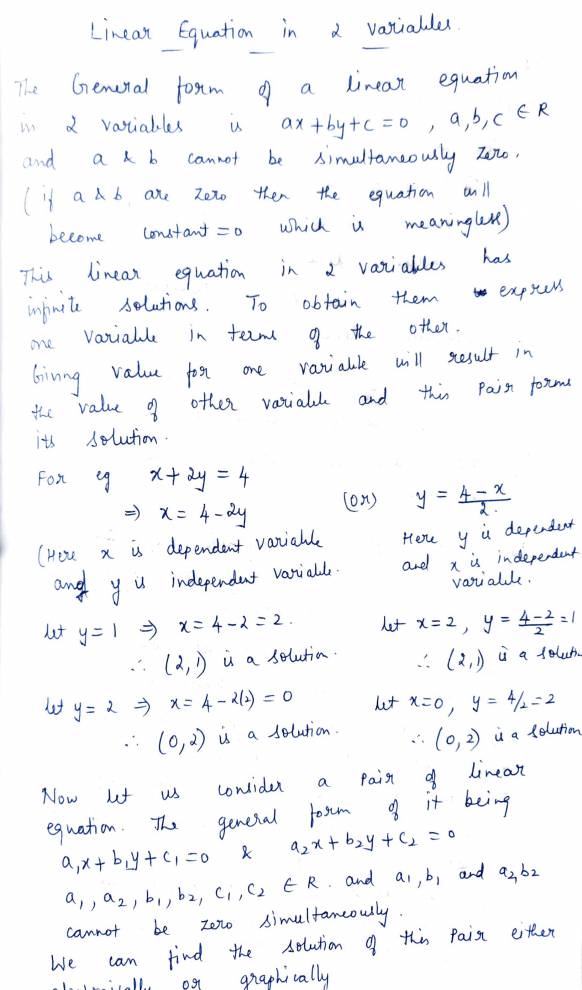 Linear Equation in 2 variables.
The General form of a linear equation
in 2 variables is ax+by+c=0, a,b,c ∈ R
and a & b cannot be simultaneously zero.
(if a & b are zero then the equation will
become constant = 0 which is meaningless)
This linear equation in 2 variables has
infinite solutions. To obtain them express
one variable in terms of the other.
Giving value for one variable will result in
the value of other variable and this pair forms
its solution.
For eg x + 2y = 4
⇒ x = 4 - 2y (or) y = (4-x)/2.
(Here x is dependent variable Here y is dependent
and y is independent variable. and x is independent
variable.
Let y=1 ⇒ x = 4-2 = 2. Let x=2, y = (4-2)/2 = 1
∴ (2,1) is a solution. ∴ (2,1) is a
Let y=2 ⇒ x = 4-2(2) = 0 Let x=0, y = 4/2 = 2
∴ (0,2) is a solution. ∴ (0,2) is a solution
Now let us consider a pair of linear
equation. The general form of it being
a₁x + b₁y + c₁ = 0 & a₂x + b₂y + c₂ = 0
a₁, a₂, b₁, b₂, c₁, c₂ ∈ R. and a₁, b₁ and a₂, b₂
cannot be zero simultaneously.
We can find the solution of this pair either
or graphically